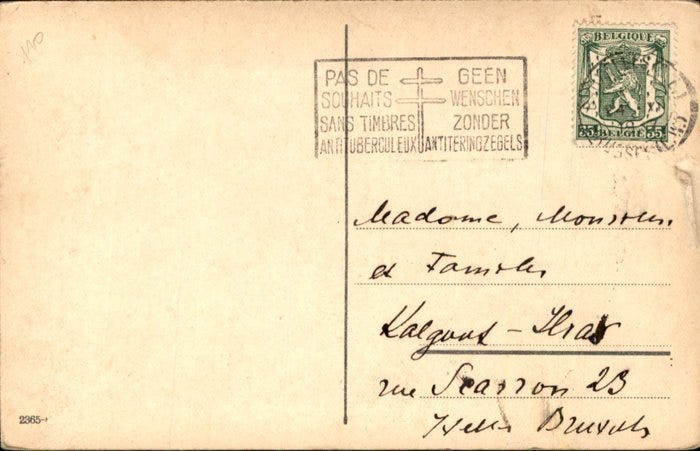 1100
BELGIQUE
35 BELGIË 35
PAS DE GEEN
SOUHAITS WENSCHEN
SANS TIMBRES ZONDER
ANTITUBERCULEUX ANTITERINGZEGELS
BRUXELLES
BRUSSEL
Madame, Monsieur
et Familie
rue Scarron 23
Ixelles Bruxelles
2365-